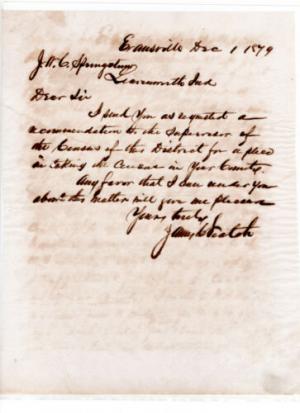 Evansville Dec 1 1879
J.H.C. Springston
Leavenworth Ind
Dear Sir
I send you as requested a
recommendation to the Supervisor of
the Census of this District for a place
in taking the Census in Your County.
Any favor that I can render you
about this matter will give me pleasure
Yours truly
James